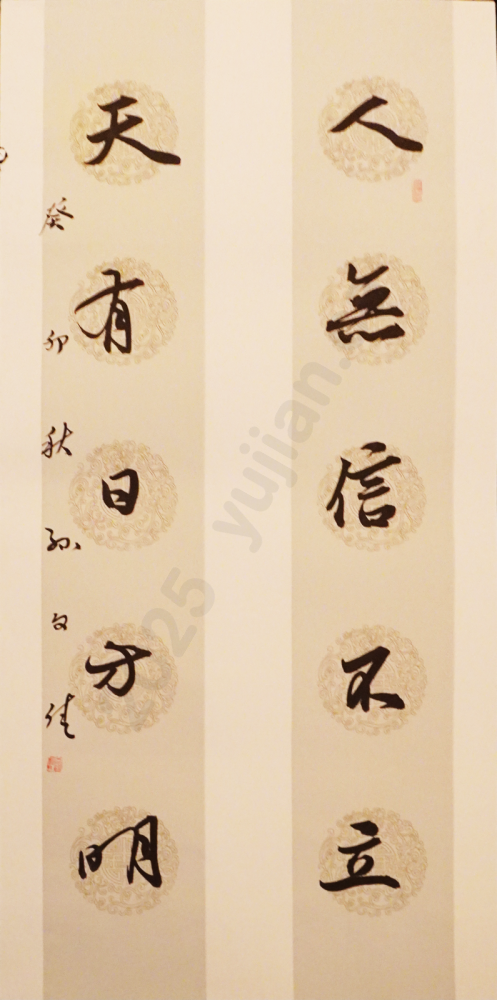 人無信不立
天有日方明
癸卯秋孙文佳
2025 yujian.